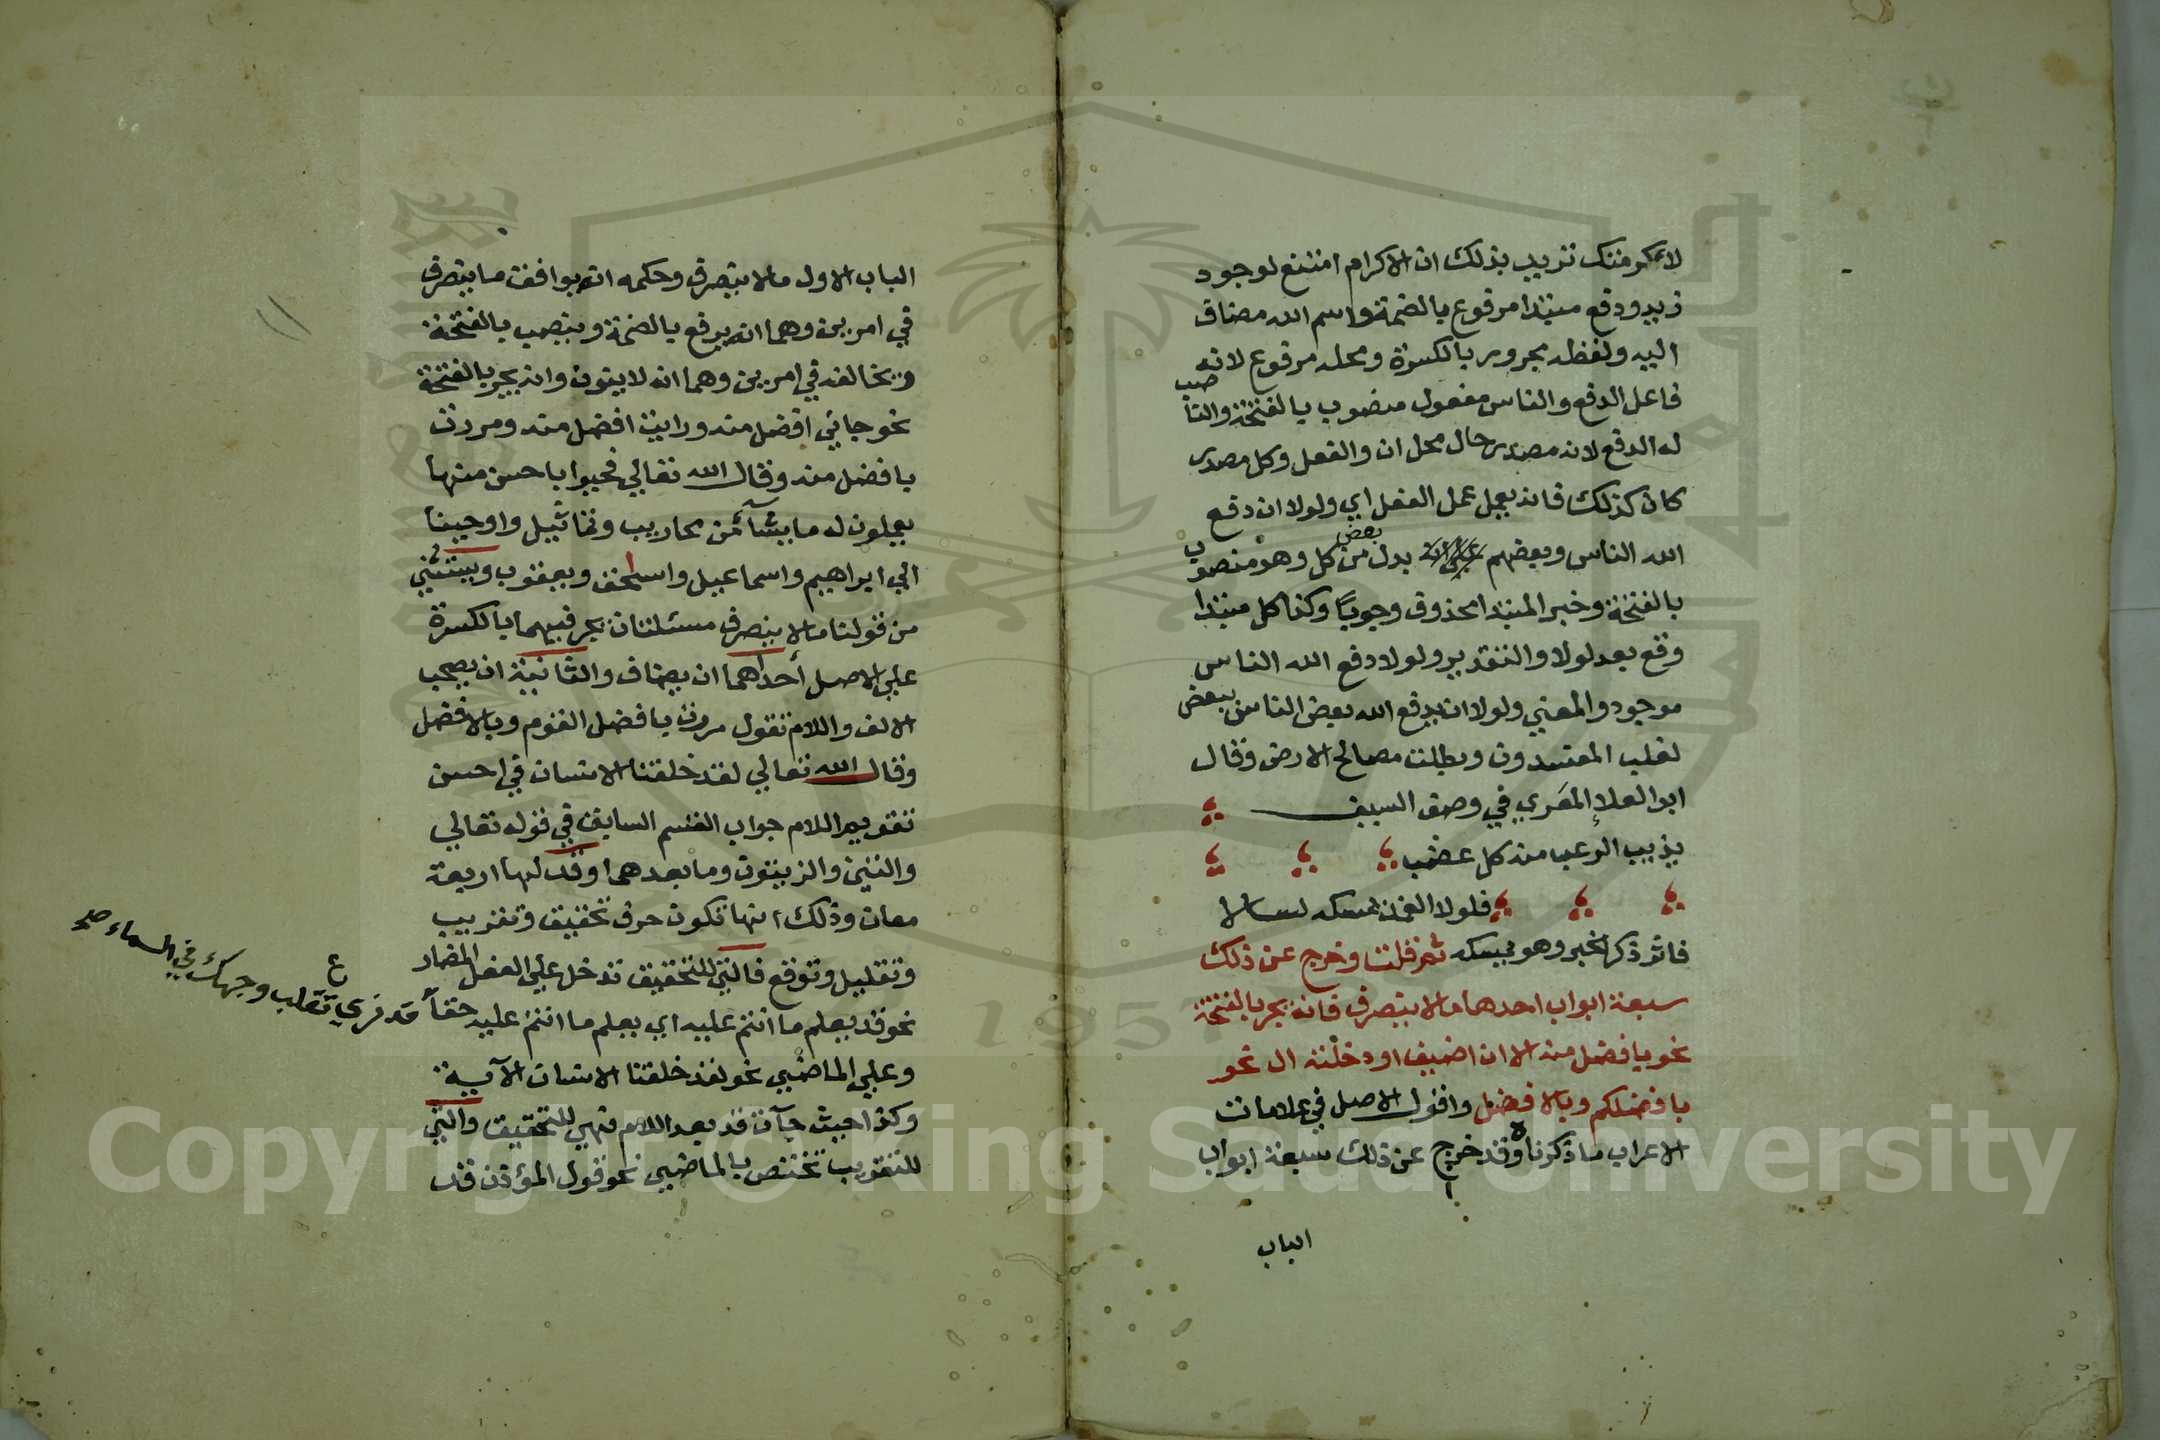 لاكرمتك تريد بذلك ان الاكرام امتنع لوجود
زيد ودفع مبتدا مرفوع بالضمة واسم الله مضاف
اليه ولفظه مجرور بالكسرة ومحله مرفوع لانه
فاعل الدفع والناس مفعول منصوب بالفتحة والناصب
له الدفع لانه مصدر حال محل ان والفعل وكل مصدر
كان كذلك فانه يعمل عمل الفعل اي ولولا ان دفع
الله الناس وبعضهم بدل بعض من كل وهو منصوب
بالفتحة وخبر المبتدا محذوف وجوبًا وكذا كل مبتدا
وقع بعد لولا والتقدير ولولا دفع الله الناس
موجود والمعني ولولا ان يدفع الله بعض الناس ببعض
لغلب المفسدون وبطلت مصالح الارض وقال
ابو العلاء المعَري في وصف السيف
يذيب الرعب منه كل عضب
فلولا الغمد يمسكه لسالا
فاثر ذكر الخبر وهو يمسكه ثم قلت وخرج عن ذلك
سبعة ابواب احدها ما لا ينصرف فانه يجر بالفتحة
نحو بافضل منه الا ان اضيف او دخلته ال نحو
بافضلكم وبالافضل واقول الاصل في علامات
الاعراب ما ذكرناه وقد خرج عن ذلك سبعة ابواب
الباب
الباب الاول ما لا ينصرف وحكمه انه يوافق ما ينصرف
في امرين وهما انه يرفع بالضمة وينصب بالفتحة
ويخالفه في امرين وهما انه لا ينون وانه يجر بالفتحة
نحو جاني افضل منه ورايت افضل منه ومررت
بافضل منه وقال الله تعالي فحيوا باحسن منها
يعملون له ما يشآء من محاريب وتماثيل واوحينا
الي ابراهيم واسماعيل واسحق ويعقوب ويستثني
من قولنا ما لا ينصرف مسئلتان يجر فيهما بالكسرة
علي الاصل أحداهما ان يضاف والثانية ان يصحب
الالف واللام تقول مررت بافضل القوم وبالافضل
وقال الله تعالي لقد خلقنا الانسان في احسن
تقويم اللام جواب القسم السابق في قوله تعالي
والتين والزيتون وما بعدهما وقد لها اربعة
معان وذلك انها تكون حرف تحقيق وتقريب
وتقليل وتوقع فالتي للتحقيق تدخل علي الفعل المضارع
نحو قد يعلم ما انتم عليه اي يعلم ما انتم عليه حقاً قد نري تقلب وجهك في السماء صح
وعلي الماضي نحو لقد خلقنا الانسان الآية
وكذا حيث جآت قد بعد اللام فهي للتحقيق والتي
للتقريب تختص بالماضي نحو قول المؤذن قد
Copyright © King Saud University
1957